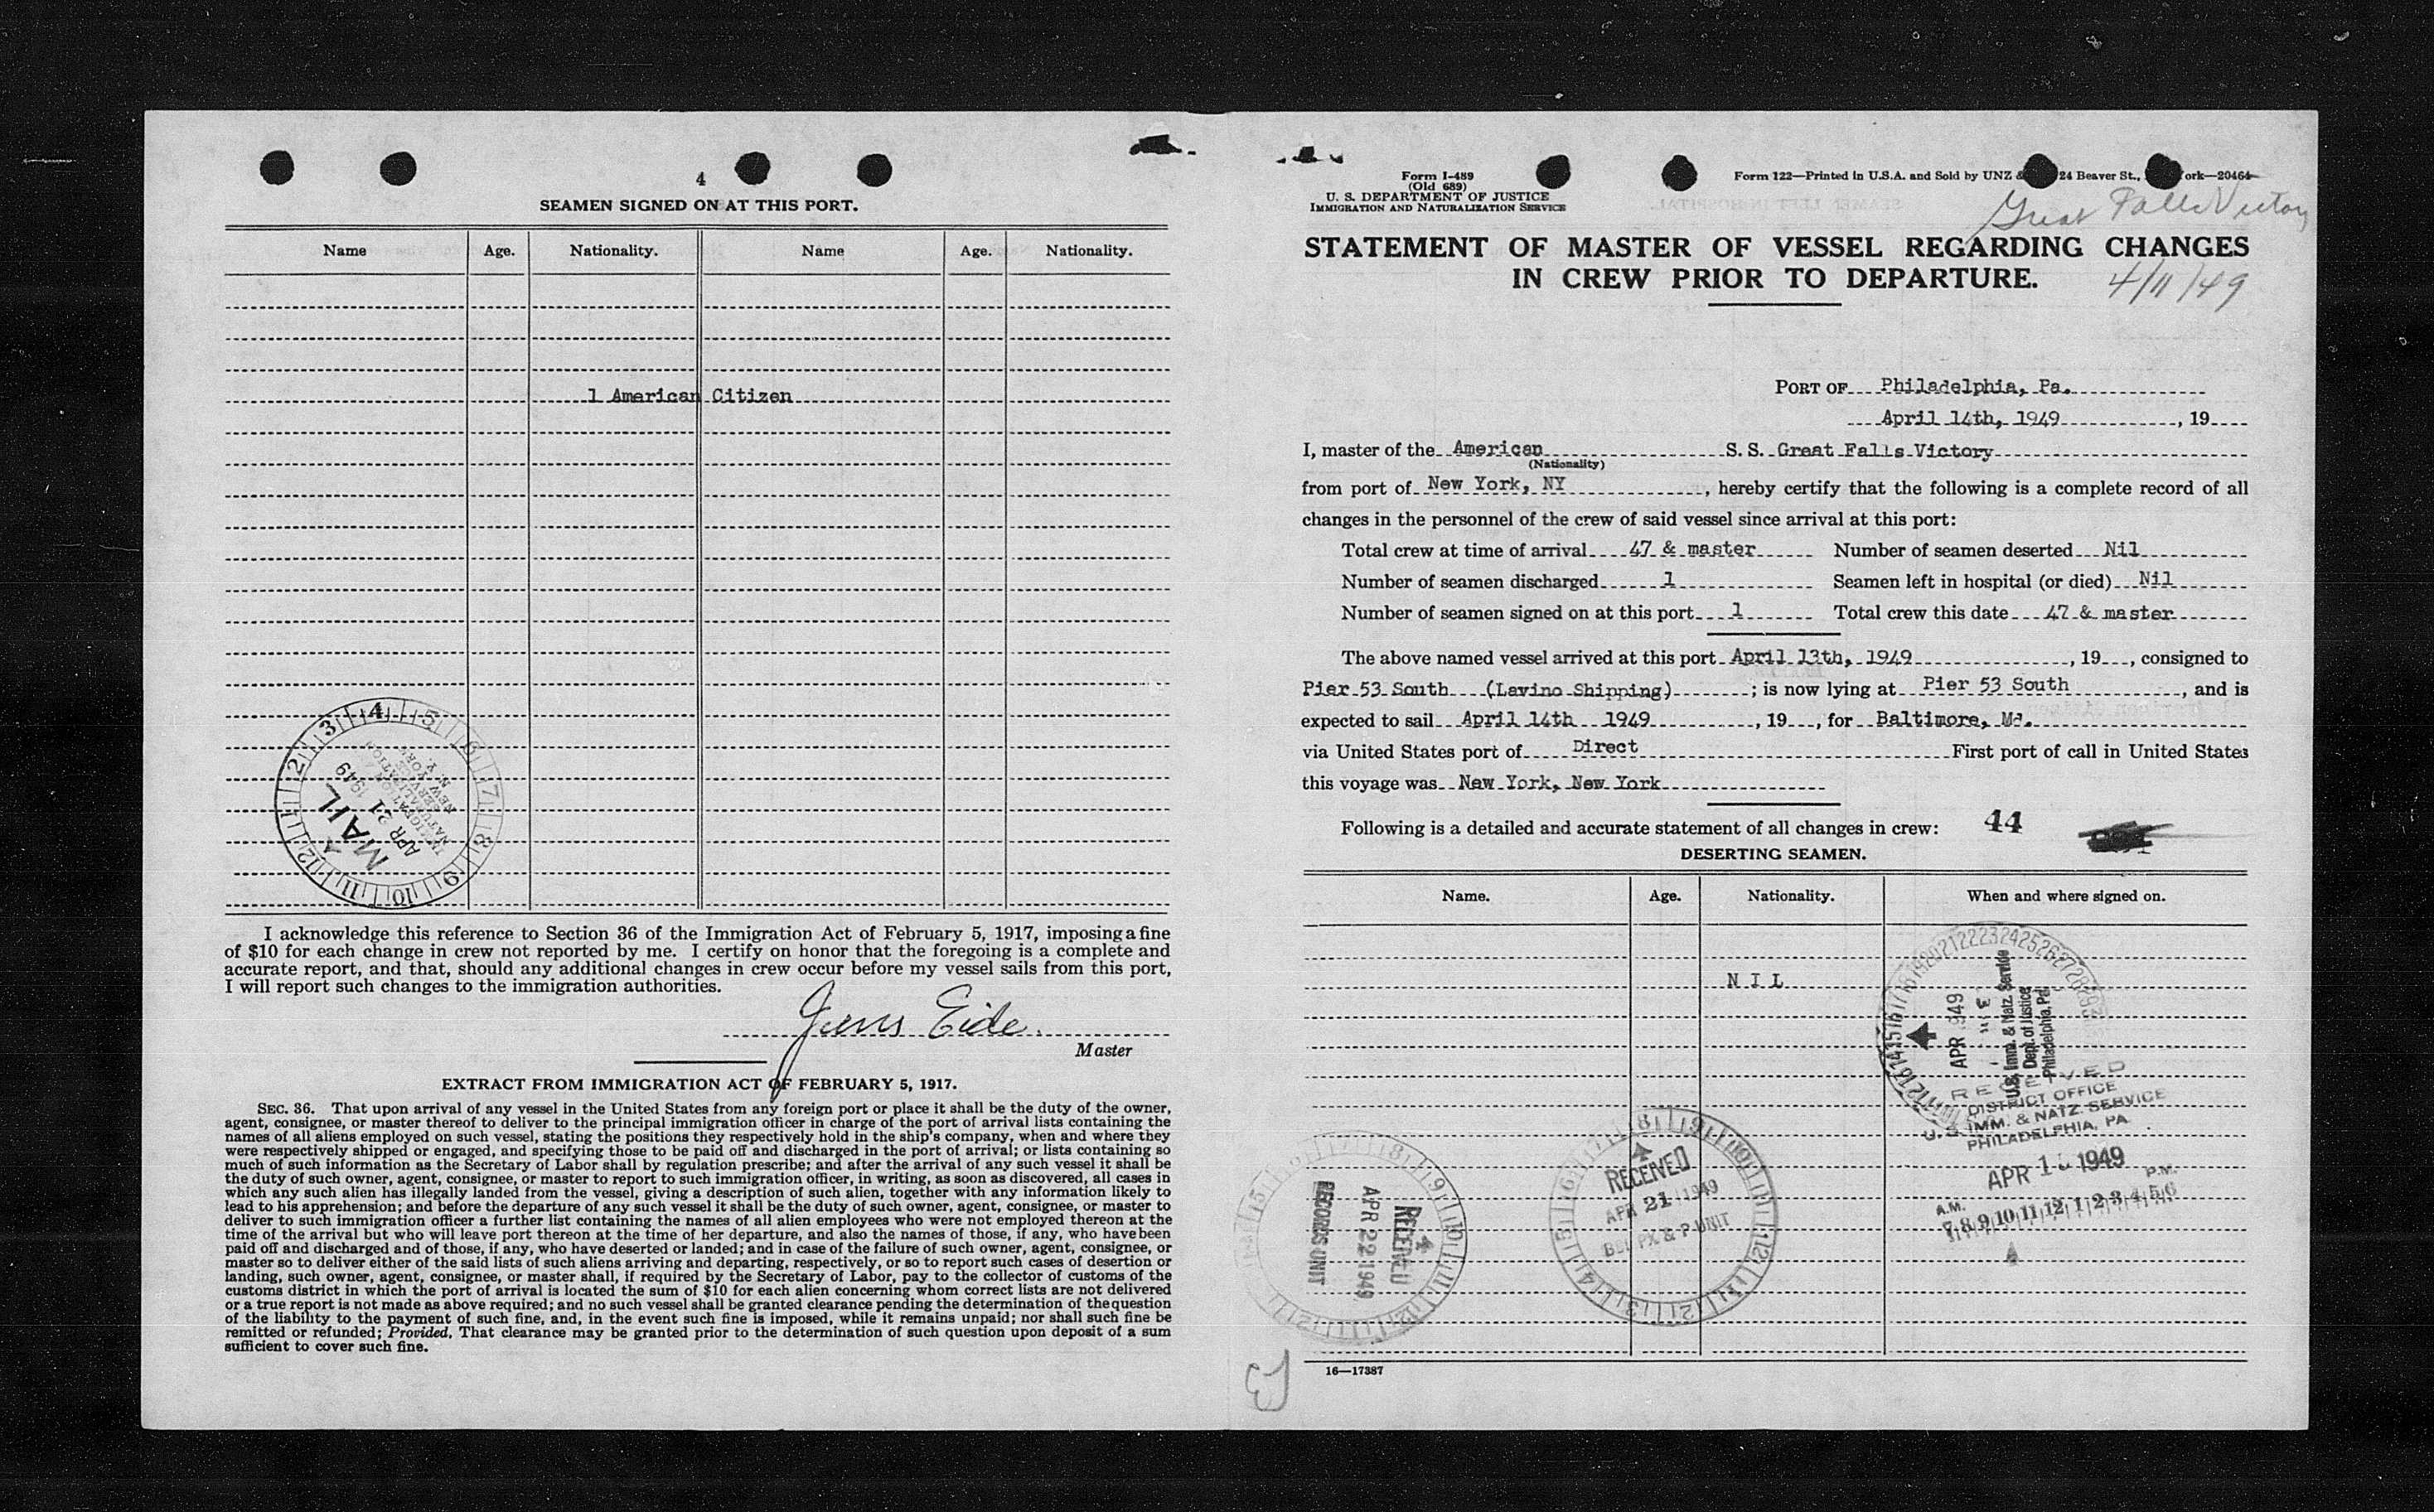 4
SEAMEN SIGNED ON AT THIS PORT.
Name Age. Nationality. Name Age. Nationality.
1 American Citizen
3 4 5 6 7 8 9 10 11 12 1 2
MAIL
APR 21 1949
NEW YORK
N. Y.
I acknowledge this reference to Section 36 of the Immigration Act of February 5, 1917, imposing a fine
of $10 for each change in crew not reported by me. I certify on honor that the foregoing is a complete and
accurate report, and that, should any additional changes in crew occur before my vessel sails from this port,
I will report such changes to the immigration authorities.
Jens Eide.
Master
EXTRACT FROM IMMIGRATION ACT OF FEBRUARY 5, 1917.
SEC. 36. That upon arrival of any vessel in the United States from any foreign port or place it shall be the duty of the owner,
agent, consignee, or master thereof to deliver to the principal immigration officer in charge of the port of arrival lists containing the
names of all aliens employed on such vessel, stating the positions they respectively hold in the ship's company, when and where they
were respectively shipped or engaged, and specifying those to be paid off and discharged in the port of arrival; or lists containing so
much of such information as the Secretary of Labor shall by regulation prescribe; and after the arrival of any such vessel it shall be
the duty of such owner, agent, consignee, or master to report to such immigration officer, in writing, as soon as discovered, all cases in
which any such alien has illegally landed from the vessel, giving a description of such alien, together with any information likely to
lead to his apprehension; and before the departure of any such vessel it shall be the duty of such owner, agent, consignee, or master to
deliver to such immigration officer a further list containing the names of all alien employees who were not employed thereon at the
time of the arrival but who will leave port thereon at the time of her departure, and also the names of those, if any, who have been
paid off and discharged and of those, if any, who have deserted or landed; and in case of the failure of such owner, agent, consignee, or
master so to deliver either of the said lists of such aliens arriving and departing, respectively, or so to report such cases of desertion or
landing, such owner, agent, consignee, or master shall, if required by the Secretary of Labor, pay to the collector of customs of the
customs district in which the port of arrival is located the sum of $10 for each alien concerning whom correct lists are not delivered
or a true report is not made as above required; and no such vessel shall be granted clearance pending the determination of the question
of the liability to the payment of such fine, and, in the event such fine is imposed, while it remains unpaid; nor shall such fine be
remitted or refunded; Provided, That clearance may be granted prior to the determination of such question upon deposit of a sum
sufficient to cover such fine.
Form I-489
(Old 689)
U. S. DEPARTMENT OF JUSTICE
IMMIGRATION AND NATURALIZATION SERVICE
Form 122—Printed in U.S.A. and Sold by UNZ & 24 Beaver St., ork—20464
Great Falls Victory
STATEMENT OF MASTER OF VESSEL REGARDING CHANGES
IN CREW PRIOR TO DEPARTURE.
4/11/49
PORT OF Philadelphia, Pa.
April 14th, 1949, 19
I, master of the American S. S. Great Falls Victory
(Nationality)
from port of New York, NY, hereby certify that the following is a complete record of all
changes in the personnel of the crew of said vessel since arrival at this port:
Total crew at time of arrival 47 & master Number of seamen deserted Nil
Number of seamen discharged 1 Seamen left in hospital (or died) Nil
Number of seamen signed on at this port 1 Total crew this date 47 & master
The above named vessel arrived at this port April 13th, 1949, 19, consigned to
Pier 53 South (Lavino Shipping); is now lying at Pier 53 South, and is
expected to sail April 14th 1949, 19, for Baltimore, Md.
via United States port of Direct First port of call in United States
this voyage was New York, New York
Following is a detailed and accurate statement of all changes in crew: 44
DESERTING SEAMEN.
Name. Age. Nationality. When and where signed on.
NIL
APR 1949
U.S. Imm. & Natz. Service
Dept. of Justice
Philadelphia, Pa.
RECEIVED
DISTRICT OFFICE
U. S. IMM. & NATZ. SERVICE
PHILADELPHIA, PA.
APR 1 1949
A.M. P.M.
7 8 9 10 11 12 1 2 3 4 5 6
RECEIVED
APR 21 1949
PX & P UNIT
RECEIVED
APR 22 1949
RECORDS UNIT
16—17387